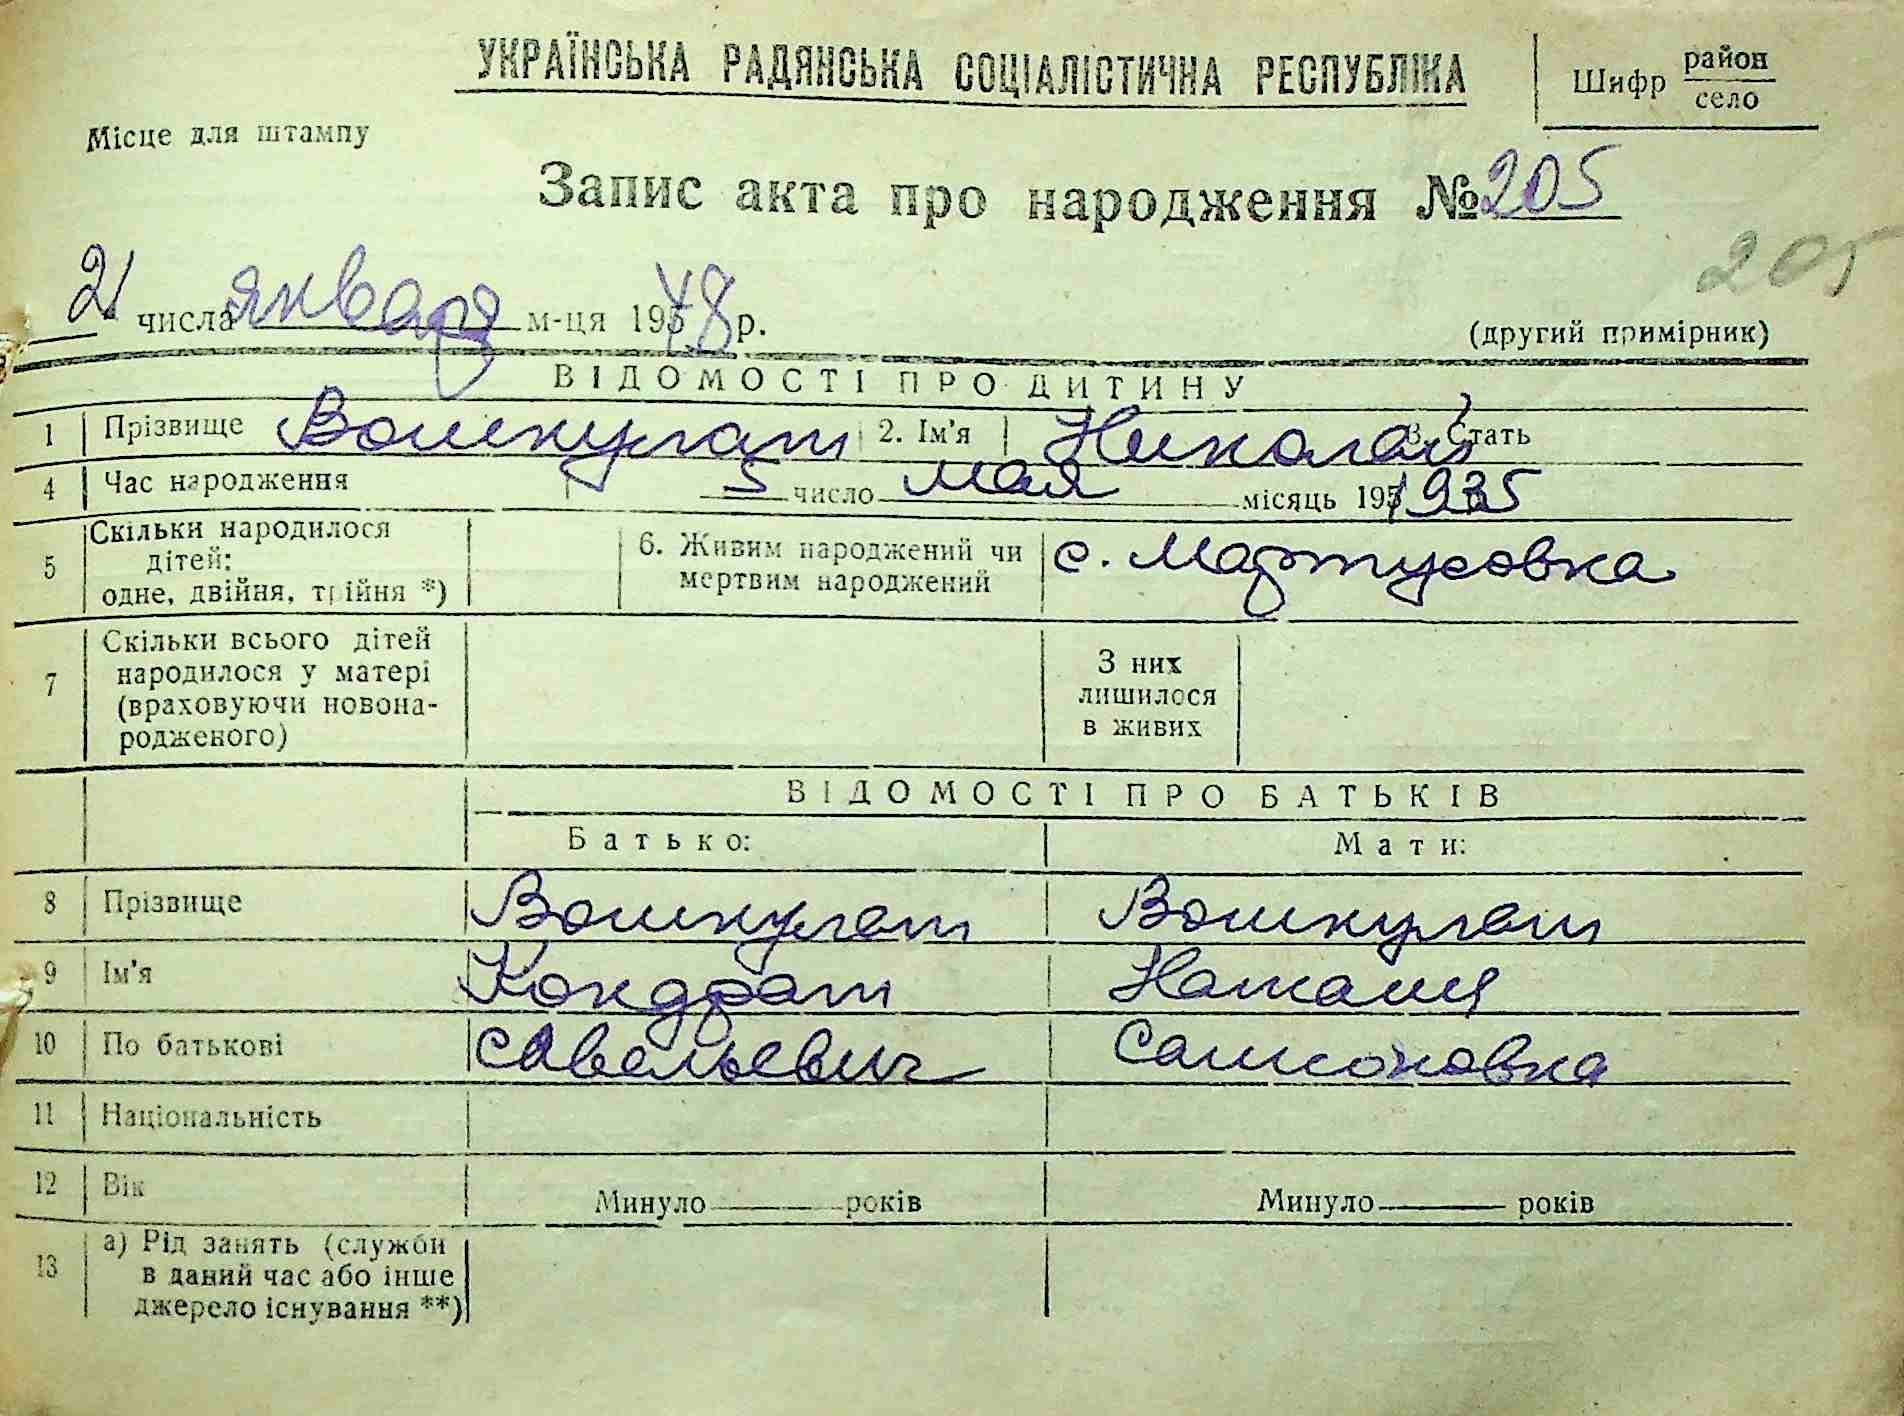 УКРАЇНСЬКА РАДЯНСЬКА СОЦІАЛІСТИЧНА РЕСПУБЛІКА
Шифр район село
Місце для штампу
Запис акта про народження № 205
205
21 числа января м-ця 1948 р.
(другий примірник)
ВІДОМОСТІ ПРО ДИТИНУ
1 Прізвище Вошкулат 2. Ім'я Николай 3. Стать
4 Час народження 5 число мая місяць 195 1935
5 Скільки народилося дітей: одне, двійня, трійня *) 6. Живим народжений чи мертвим народжений с. Мартусовка
7 Скільки всього дітей народилося у матері (враховуючи новонародженого) З них лишилося в живих
ВІДОМОСТІ ПРО БАТЬКІВ
Батько: Мати:
8 Прізвище Вошкулат Вошкулат
9 Ім'я Кондрат Наталия
10 По батькові Савельевич Самсоновна
11 Національність
12 Вік Минуло років Минуло років
13 а) Рід занять (служби в даний час або інше джерело існування **)